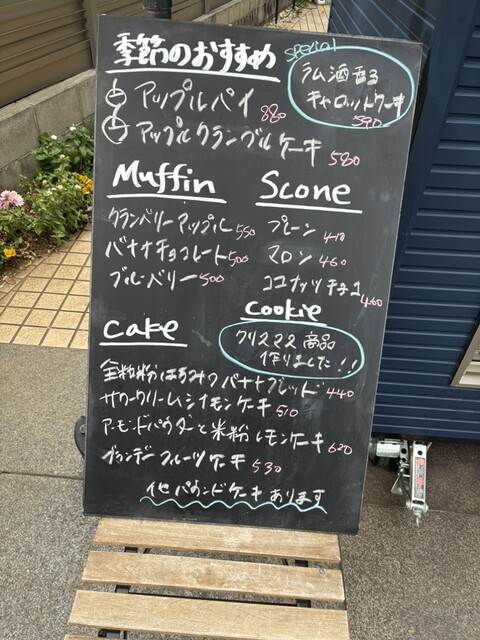 季節のおすすめ
アップルパイ 880
アップルクランブルケーキ 580
SPECIAL
ラム酒香る
キャロットケーキ
590
Muffin
クランベリーアップル 550
バナナチョコレート 500
ブルーベリー 500
Scone
プレーン 410
マロン 460
ココナッツチョコ 460
cake
cookie
クリスマス商品
作りました!!
全粒粉はちみつバナナブレッド 440
サワークリームシナモンケーキ 510
アーモンドパウダーと米粉レモンケーキ 620
ブランデーフルーツケーキ 530
他パウンドケーキあります